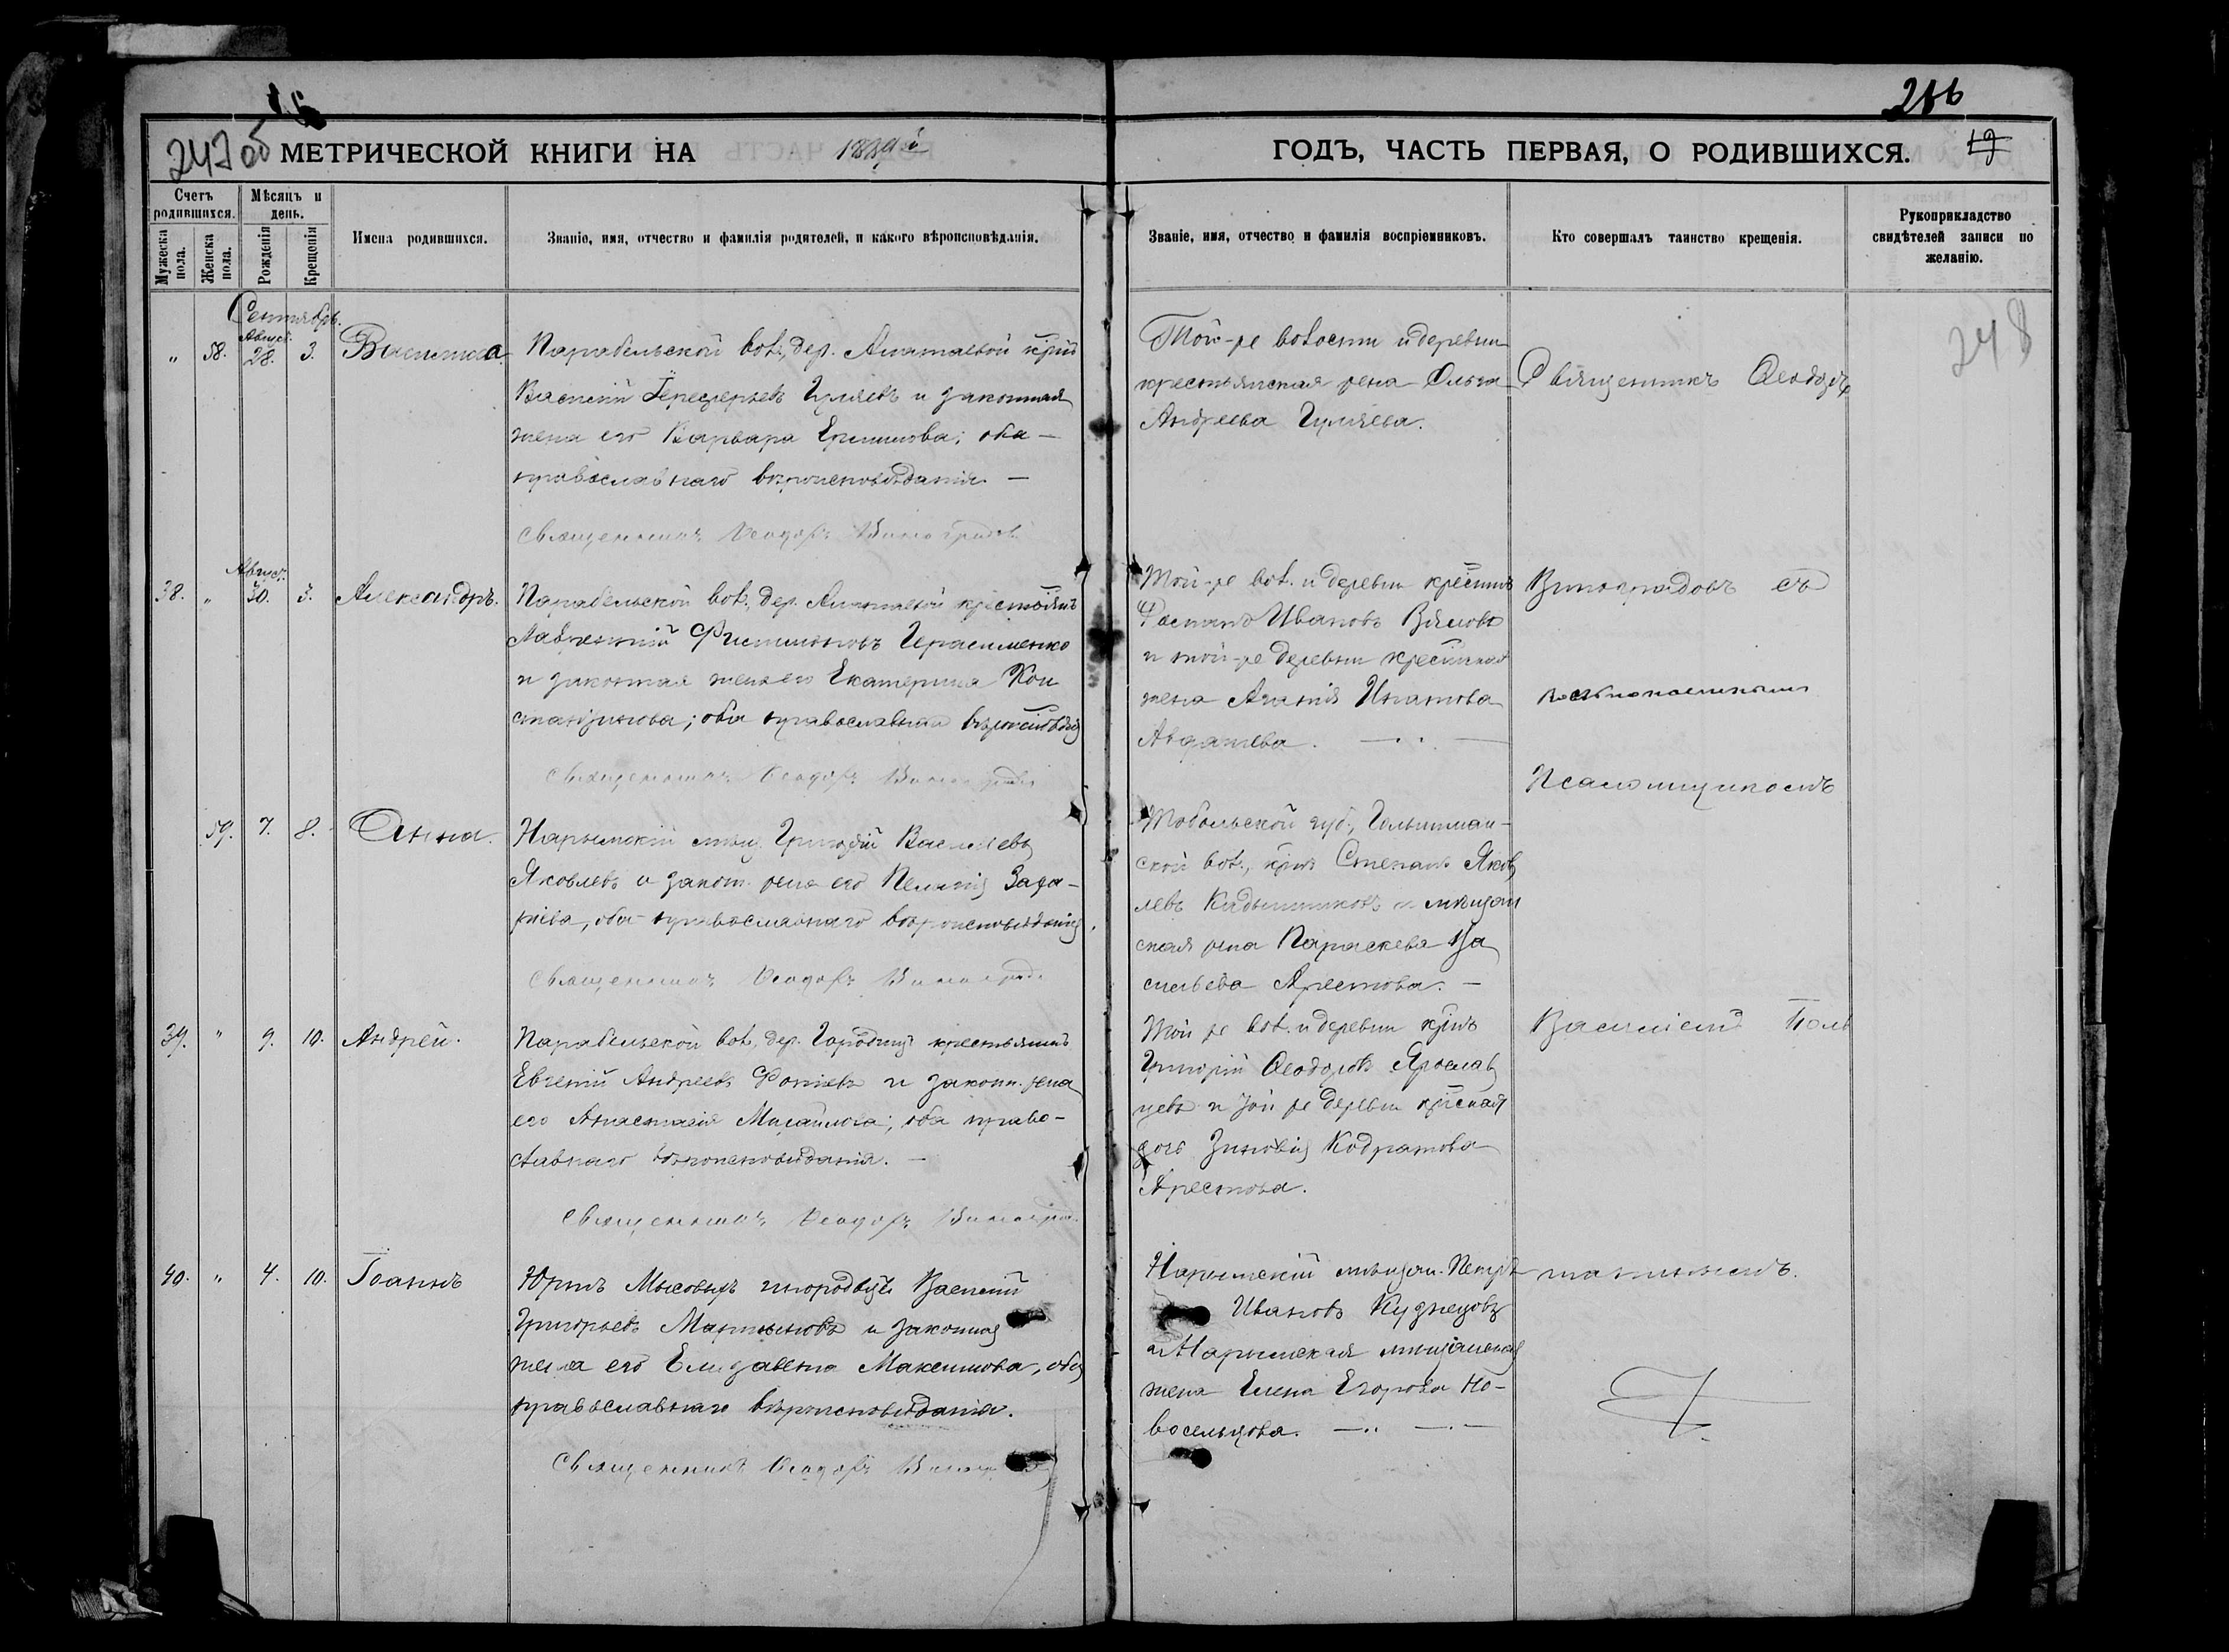 247 об
266
МЕТРИЧЕСКОЙ КНИГИ НА 1889 й
ГОДЪ, ЧАСТЬ ПЕРВАЯ, О РОДИВШИХСЯ.
19
Счетъ родившихся.
Мужеска пола.
Женска пола.
Мѣсяцъ и день.
Рожденія
Крещенія
Имена родившихся.
Званіе, имя, отчество и фамилія родителей, и какого вѣроисповѣданія.
Званіе, имя, отчество и фамилія воспріемниковъ.
Кто совершалъ таинство крещенія.
Рукоприкладство свидѣтелей записи по желанію.
248
Сентябрь.
Август.
" 58. 28. 3. Василисса
Парабельской вол., дер. Алаташевой крнъ
Василій Гуляевъ и законная
жена его Варвара; оба
православнаго вѣроисповѣданія. —
Священникъ Ѳеодоръ Виноградовъ
Той-же волости и деревни
крестьянская жена Ольга
Андреева Гуляева.
Священникъ Ѳеодоръ
Август.
38. " 30. 3. Александръ.
Парабельской вол., дер. крестьянинъ
Лаврентій Филимоновъ Герасименко
и законная жена его Екатерина Кон
стантинова; оба православнаго
Священникъ Ѳеодоръ Виноградовъ
Той-же вол. и деревни
Ивановъ
и той-же деревни
жена Агапія Игнатова
—
Виноградовъ съ
Псаломщикомъ
59. 7. 8. Анна.
Нарымскій мѣщ. Григорій Васильевъ
Яковлевъ и закон. жена его Пелагія Заха-
ріева, оба православнаго вѣроисповѣданія.
Священникъ Ѳеодоръ Виноградовъ
Тобольской губ., Голышман-
ской вол., крнъ Степанъ Яков
левъ и мѣщан
ская жена Параскева Ва
сильева Арестова. —
39. " 9. 10. Андрей.
Парабельской вол., дер. Городищ крестьянинъ
Евгеній Андреевъ Фотіевъ и законн. жена
его Анастасія Михайлова; оба право-
славнаго вѣроисповѣданія. —
Священникъ Ѳеодоръ Виноградовъ
Той же вол. и деревни крнъ
Григорій Ѳеодоровъ Ярослав
цевъ и той же деревни
дочь Зиновія Кодратова
Арестова.
Василіемъ Поль
40. " 4. 10. Іоаннъ
Юртъ Мысовыхъ инородецъ Василій
Григорьевъ Мартыновъ и законная
жена его Елизавета Максимова, оба
православнаго вѣроисповѣданія.
Священникъ Ѳеодоръ Виноградовъ
Нарымскій мѣщан. Петръ
Ивановъ Кузнецовъ
и Нарымская мѣщанская
жена Елена Егорова Но-
восельцова.